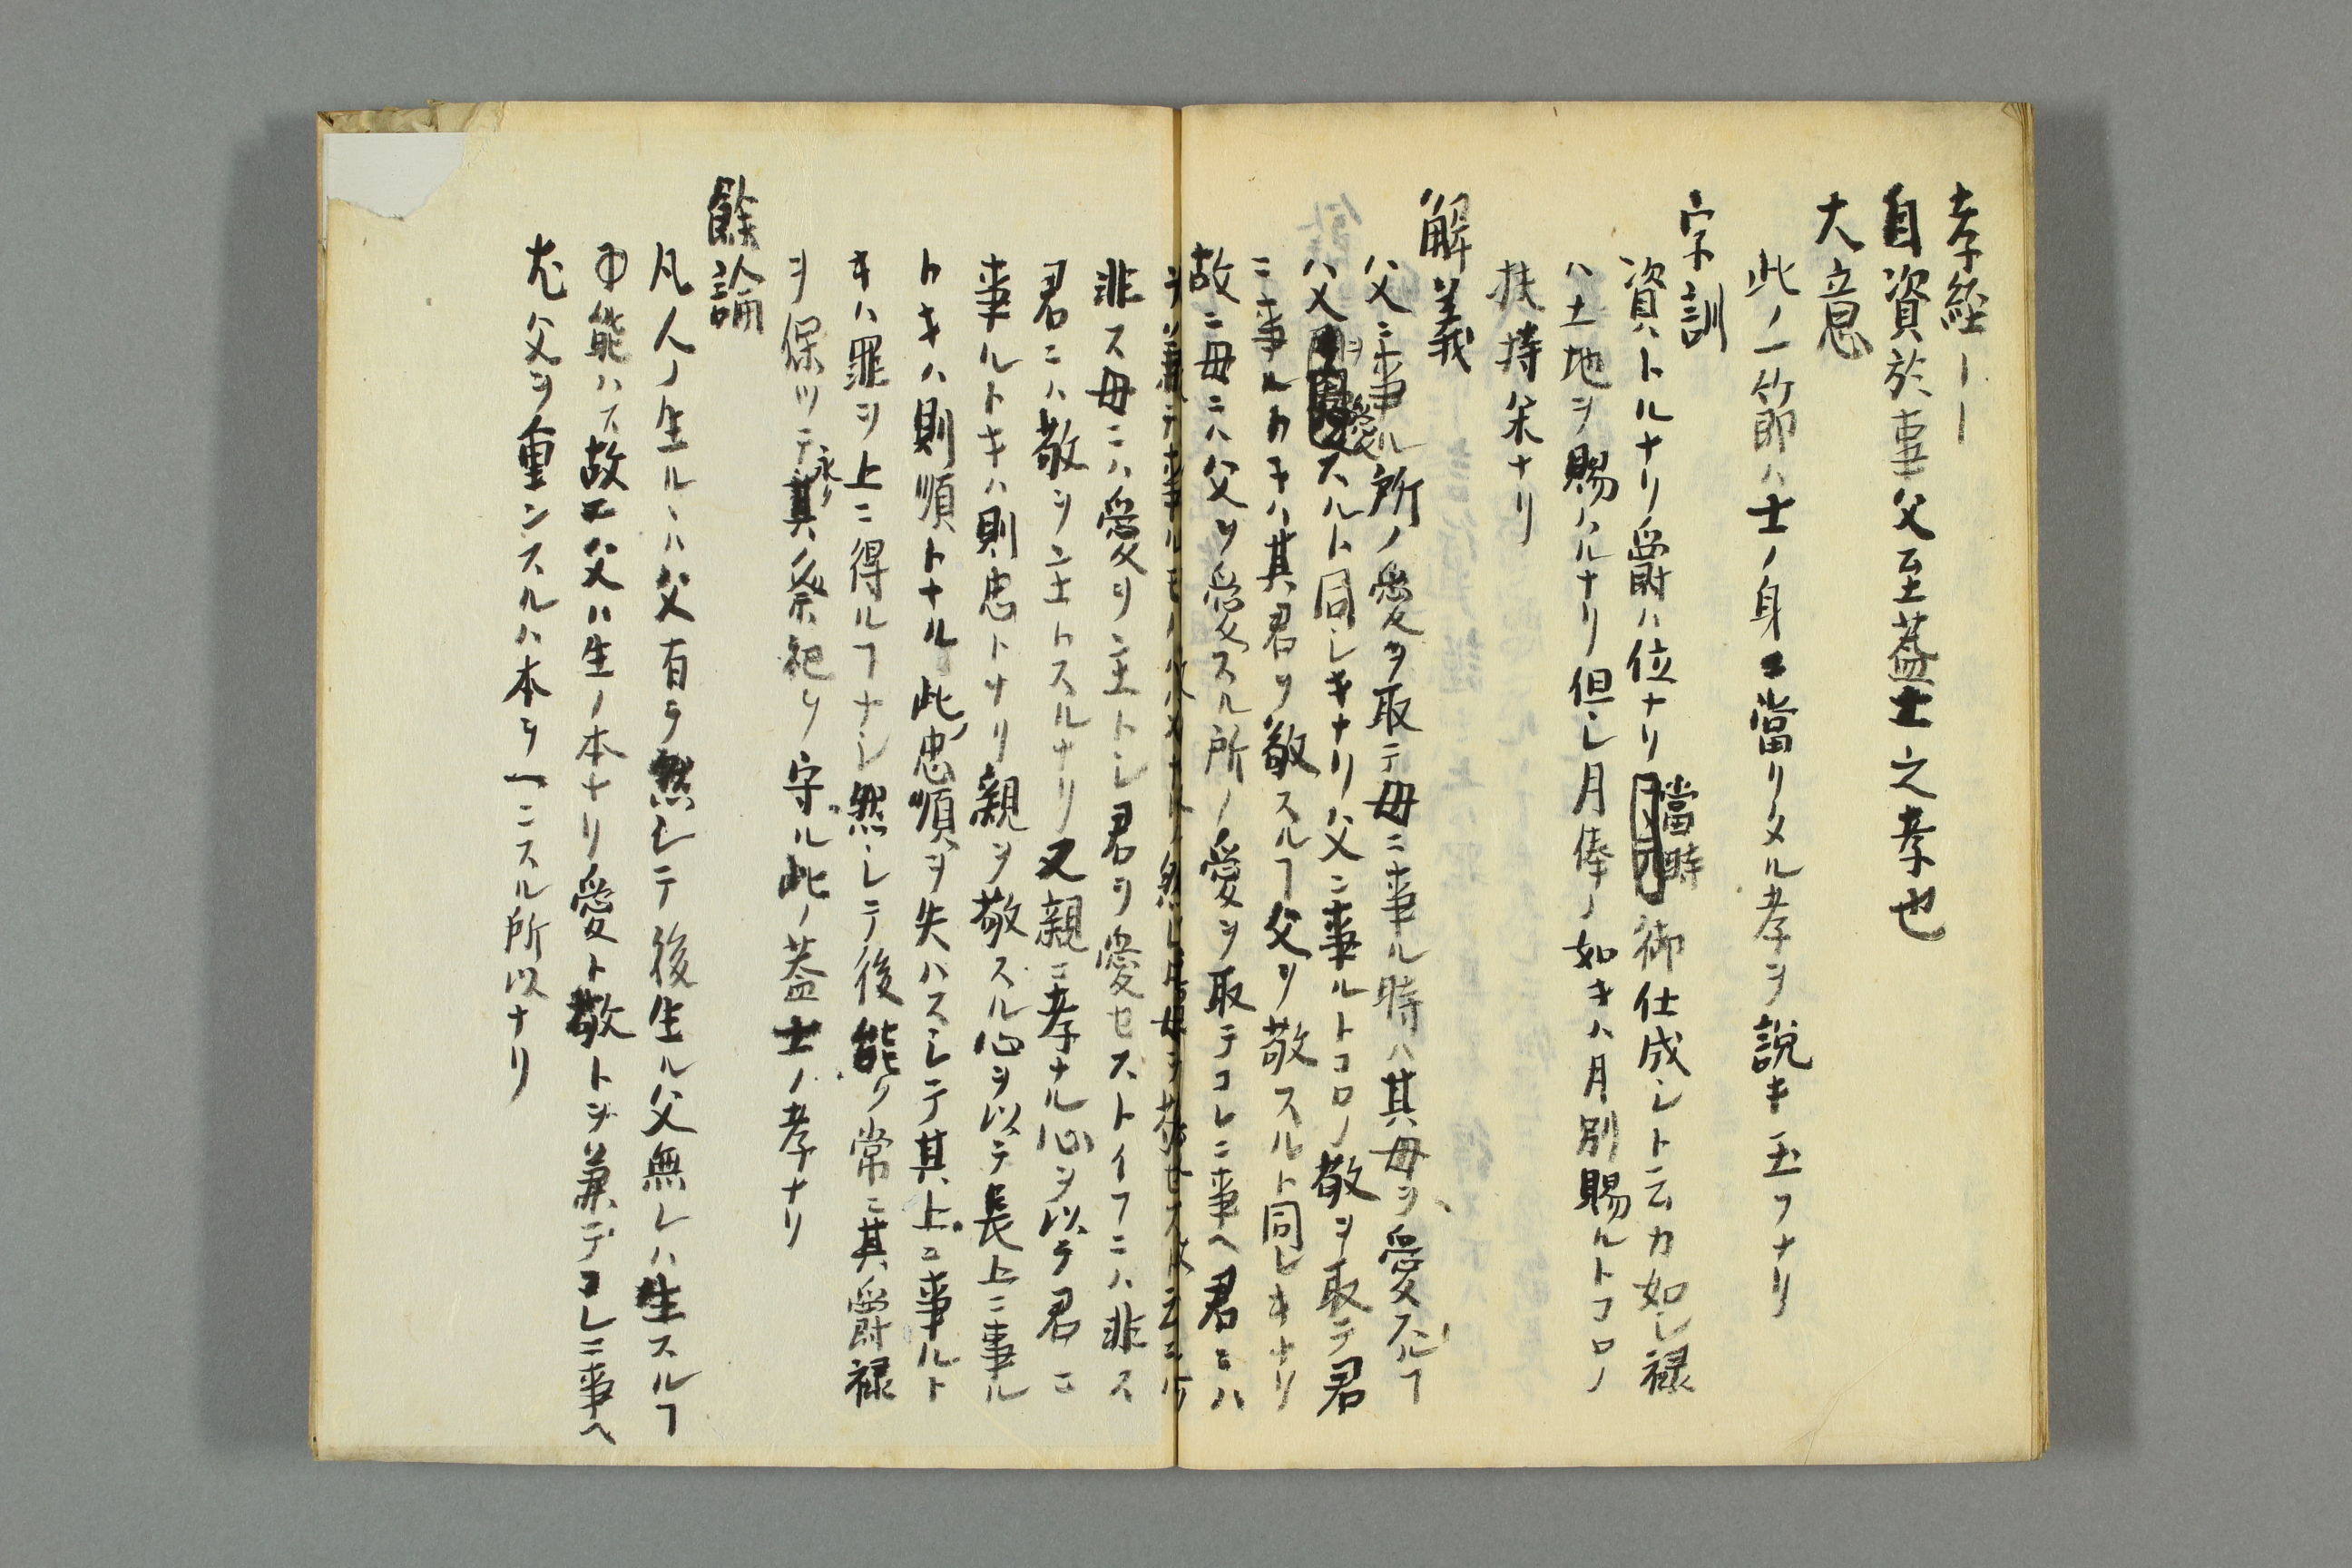 孝経――
自資於事父至蓋士之孝也
大意
此ノ一節ハ士ノ身ニ當リタル孝ヲ説キ玉フナリ
字訓
資ハトルナリ爵ハ位ナリ當時御仕成シト云カ如シ禄
ハ土地ヲ賜ハルナリ但シ月俸ノ如キハ月別賜ルトコロノ
扶持米ナリ
解義
父ニ事ル所ノ愛ヲ取テ母ニ事ル時ハ其母ヲ愛スルヿ
ハ父ヲ愛スルト同シキナリ父ニ事ルトコロノ敬ヲ取テ君
ニ事ルトキハ其君ヲ敬スルヿ父ヲ敬スルト同シキナリ
故ニ母ニハ父ヲ愛スル所ノ愛ヲ取テコレニ事ヘ君ニハ
ヲ兼テ事ルモノハ父ナリ然レ𪜈母ヲ敬セスト云ニハ
非ス母ニハ愛ヲ主トシ君ヲ愛セストイフニハ非ス
君ニハ敬ヲ主トスルナリ又親ニ孝ナル心ヲ以テ君ニ
事ルトキハ則忠トナリ親ヲ敬スル心ヲ以テ長上ニ事ル
トキハ則順トナル此忠順ヲ失ハスシテ其上ニ事ルト
キハ罪ヲ上ニ得ルヿナシ然シテ後能ク常ニ其爵禄
ヲ保ツテ永ク其祭祀ヲ守ル此ノ蓋士ノ孝ナリ
餘論
凡人ノ生ルヽハ父有ラ然シテ後生ル父無レハ生スルヿ
能ハス故ニ父ハ生ノ本ナリ愛ト敬トヲ兼テコレニ事ヘ
尤父ヲ重ンスルハ本ヲ一ニスル所以ナリ